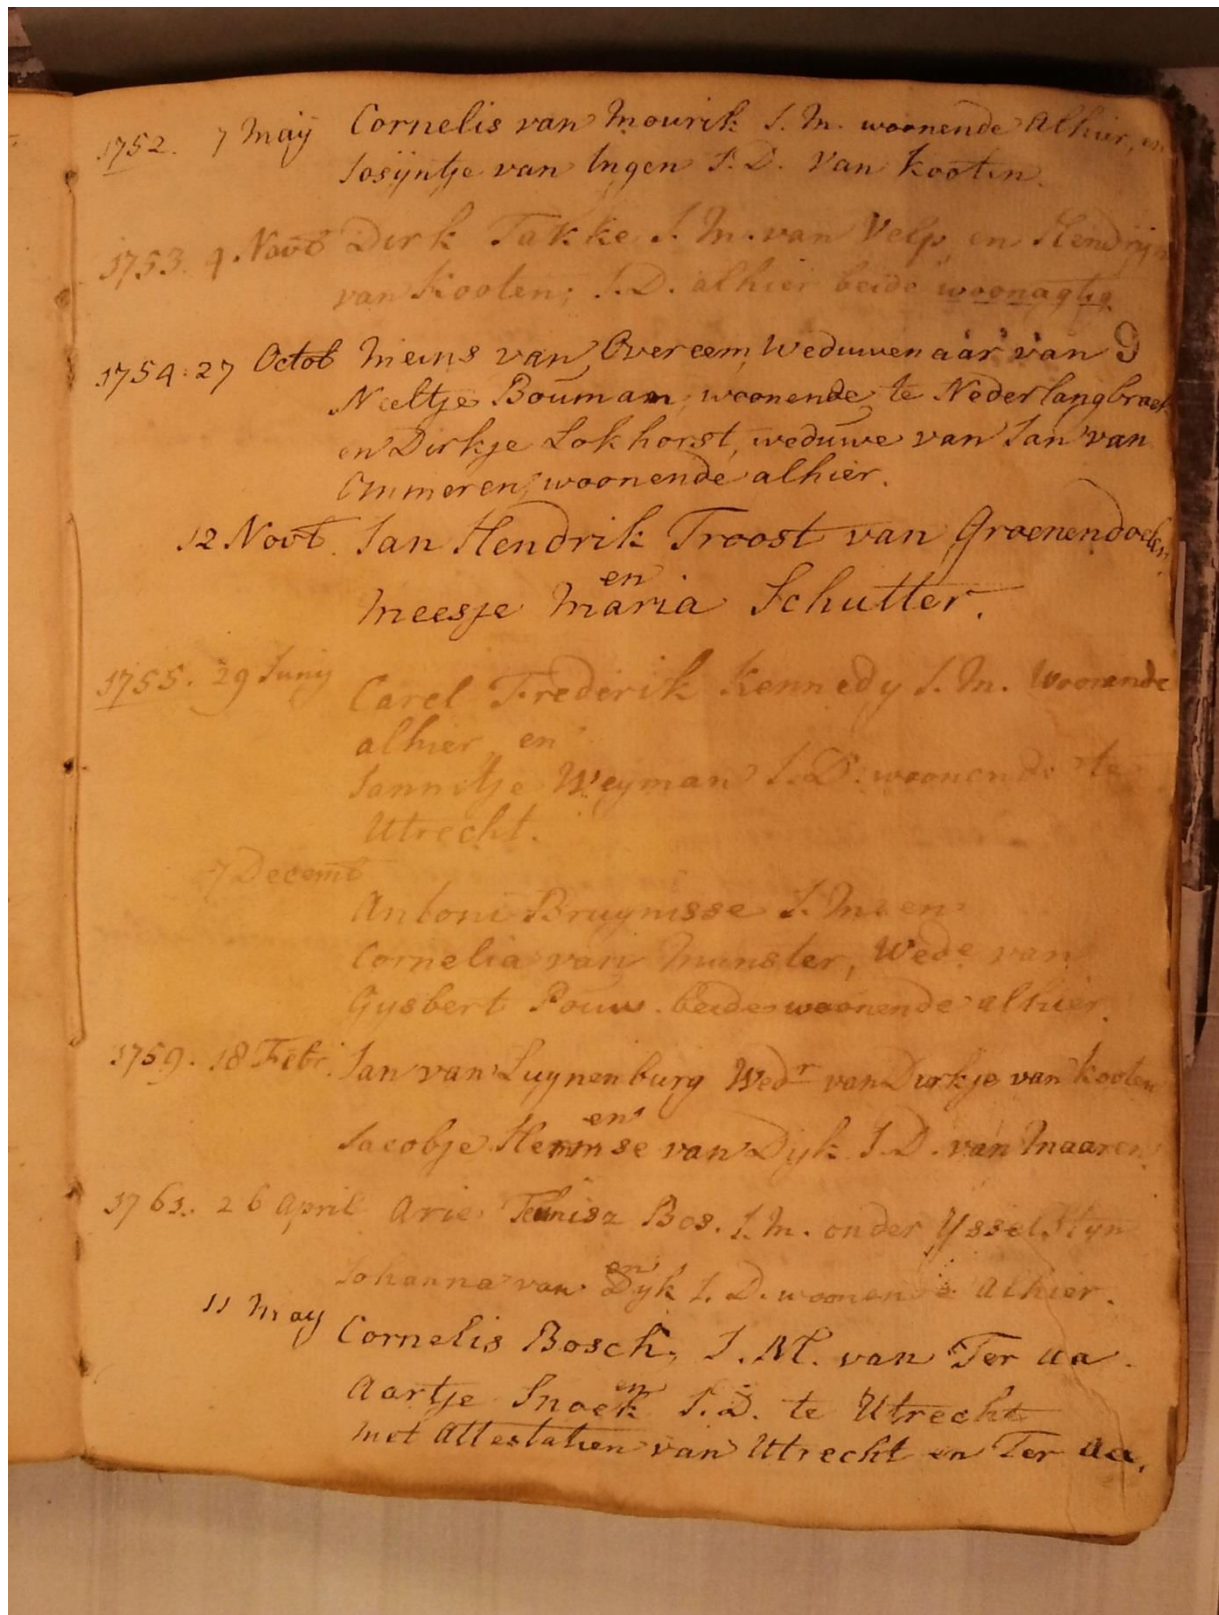 1752. 7 Maÿ Cornelis van Mourik J. M. woonende alhier, en
Josÿntje van Ingen J. D. van Kooten.
1753. 4. Novb Dirk Takke J. M. van Velp en Hendrijn
van Kooten, J. D. alhier beide woonagtig
1754. 27 Octob Meins van Overeem Weduwenaar van
Neeltje Bouman, woonende te Nederlangbroek
en Dirkje Lokhorst, weduwe van Jan van
Ommeren, woonende alhier.
12 Novb. Jan Hendrik Troost van Groenendoelen,
en
Meesje Maria Schutter.
1755. 29 Junij
Carel Frederik Kennedy J. M. Woonende
alhier en
Jannitje Weyman J. D. woonende te
Utrecht.
7 Decemb
Antoni Bruynisse J. M. en
Cornelia van Munster, Wede van
Gysbert Pouw. beide woonende alhier.
1759. 18 Febr. Jan van Luynenburg Wedr van Dirkje van Kooten
en
Jacobje Hermse van Dyk J. D. van Maaren.
1761. 26 April Arie Teunisz Bos. J. M. onder Ysselstyn
en
Johanna van Dyk J. D. woonende alhier.
11 May Cornelis Bosch, J. M. van Ter aa.
en
Aartje Snoek J. D. te Utrecht
met Attestatien van Utrecht en Ter Aa.